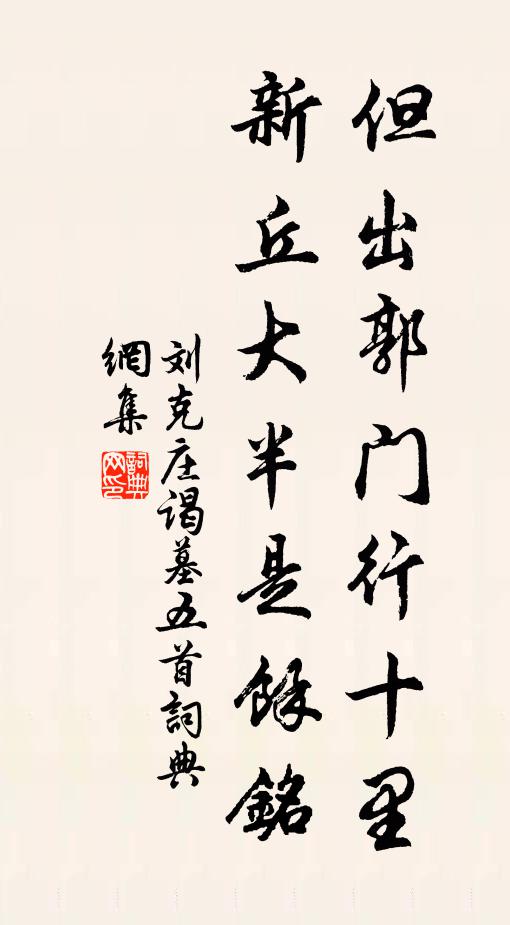 但出郭门行十里
新丘大半是餘銘
刘克庄谒墓五首詞典
網集
詞典网印